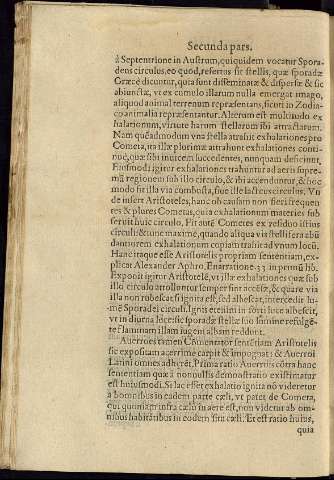 Secunda pars.
à Septentrione in Austrum, qui quidem vocatur Spora-
dens circulus, eo quod, refertus sit stellis, quæ sporadæ
Græcè dicuntur, quia sunt disseminatæ & dispersæ & sic
abiunctæ, vt ex comelo illarum nulla emergat imago,
aliquod animal terrenum repræsentans, sicuti in Zodia-
co animalia repræsentantur. Alterum est multitudo ex
halationum, virtute harum stellarum ibi attractarum.
Nam quẽadmodum vna stella atrahit exhalationes pro
Cometa, ita illæ plurimæ attrahunt exhalationes conti-
nuè, quæ sibi inuicem succedentes, nunquam deficiunt.
Eiusmodi igitur exhalationes trahuntur ad aeris supre-
mã regionem sub illo circulo, & ibi accenduntur, & hoc
modo fit illa via combusta, siue ille lacteus circulus. Vn
de infert Aristoteles, hanc ob causam non fieri frequen
tes & plures Cometas, quia exhalationum materies sub
seruit huic circulo. Fit autẽ Cometes ex residuo istius
circuli: & tunc maximè, quando aliqua vis stellifera abũ
dantiorem exhalationum copiam trahit ad vnum locũ.
Hanc itaque esse Aristotelis propriam sententiam, ex-
plicat Alexander Aphro. Enarratione. 33 in primũ lib.
Exponit igitur Aristotelẽ, vt illæ exhalationes quæ sub
illo circulo attolluntur semper sint accẽsæ, & quare via
illa non robescat si ignita est, sed albescat, intercedit lu-
mẽ Sporadei circuli. Ignis etenim in forti luce albescit,
vt in diurna luce: sic sporadæ stellæ suo lumine refulgẽ-
te flammam illam iugem albam reddunt.
Auerroes tamen Cõmentator sentẽtiam Aristotelis
sic expositam acerrimè carpit & impugnat: & Auerroi
Latini omnes adhęrẽt. Prima ratio Auerrois cõtra hanc
sententiam quæ à nonnullis demonstratio existimatur
est huiusmodi. Si lac esset exhalatio ignita nõ videretur
a hominibus in eadem parte cæli, vt patet de Cometa,
qui quoniam infra cælũ in aere est, non videtur ab om-
nibus habitãtibus in eodem situ cæli. Et est ratio huius,
quia